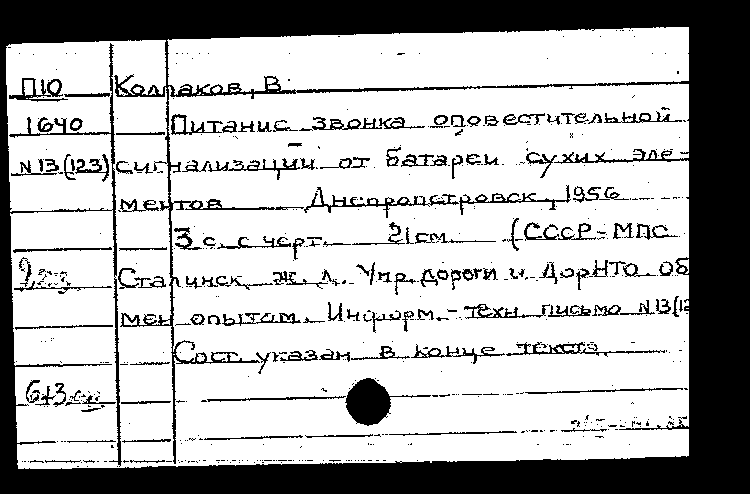 П10 Колпаков, В.
1640 Питание звонка оповестительной
N 13 (123) сигнализации от батареи сухих эле-
ментов Днепропетровск, 1956
3 с. с черт. 21 см. (СССР-МПС
Сталинск. ж. д. Упр. дороги и ДорНТО. Об
мен опытом. Информ.-техн. письмо N 13(12
Сост. указан в конце текста.